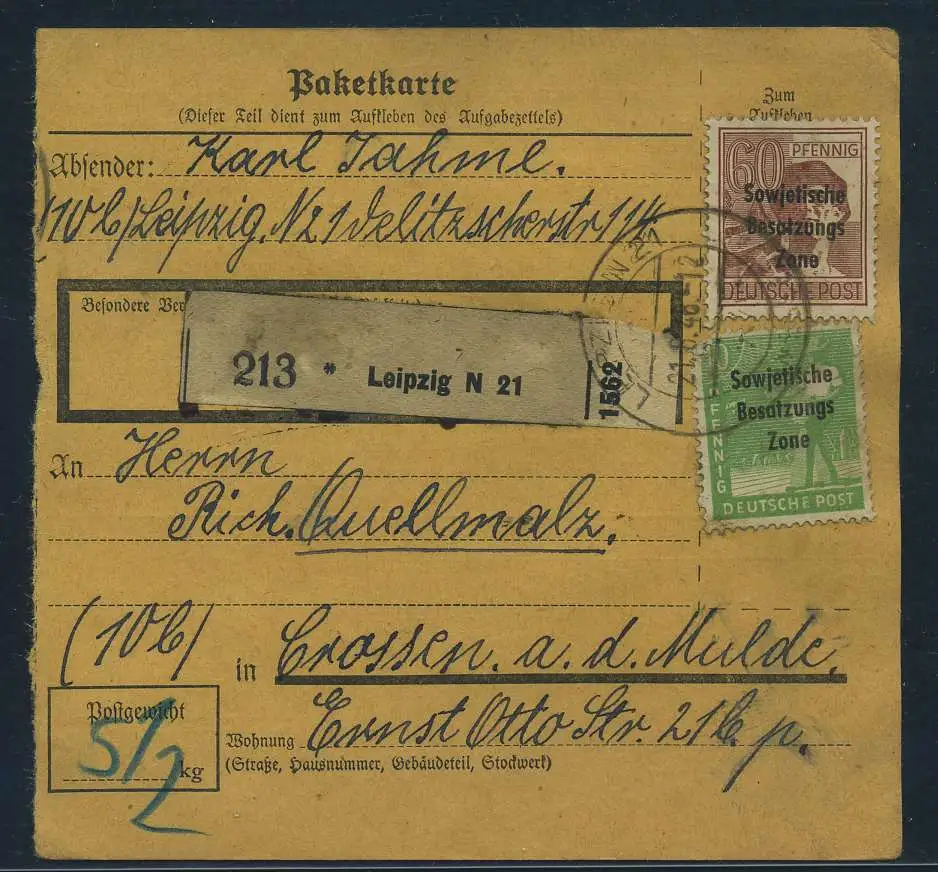 Paketkarte
(Dieser Teil dient zum Aufkleben des Aufgabezettels)
Zum
Aufkleben
Absender: Karl Jahme.
(10b) Leipzig. N21 Delitzscherstr 114
60 PFENNIG
Sowjetische
Besatzungs
Zone
DEUTSCHE POST
Besondere Ver
213 * Leipzig N 21
1562
21.8.48.-12
Sowjetische
Besatzungs
Zone
PFENNIG
DEUTSCHE POST
An Herrn
Rich. Quellmalz.
(10b) in Crossen. a. d. Mulde.
Postgewicht
5/2 kg
Wohnung Ernst Otto Str. 21b. p.
(Straße, Hausnummer, Gebäudeteil, Stockwerk)